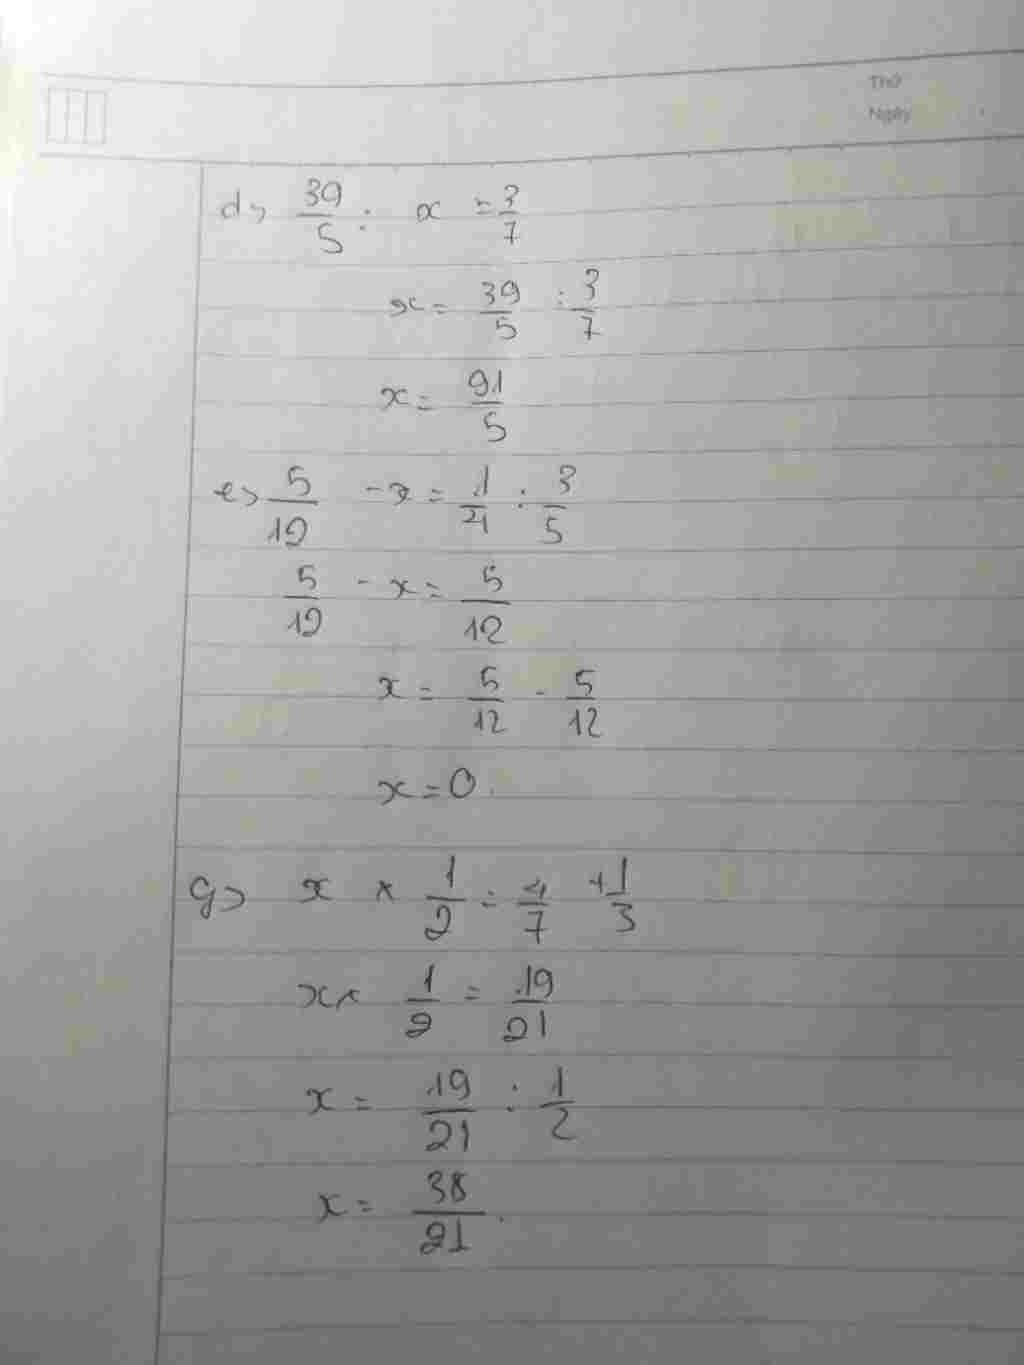 Thứ
Ngày
d> 39/5 : x = 3/7
x = 39/5 : 3/7
x = 91/5
e> 5/12 - x = 1/4 : 3/5
5/12 - x = 5/12
x = 5/12 - 5/12
x = 0.
g> x × 1/2 = 4/7 + 1/3
x × 1/2 = 19/21
x = 19/21 : 1/2
x = 38/21.